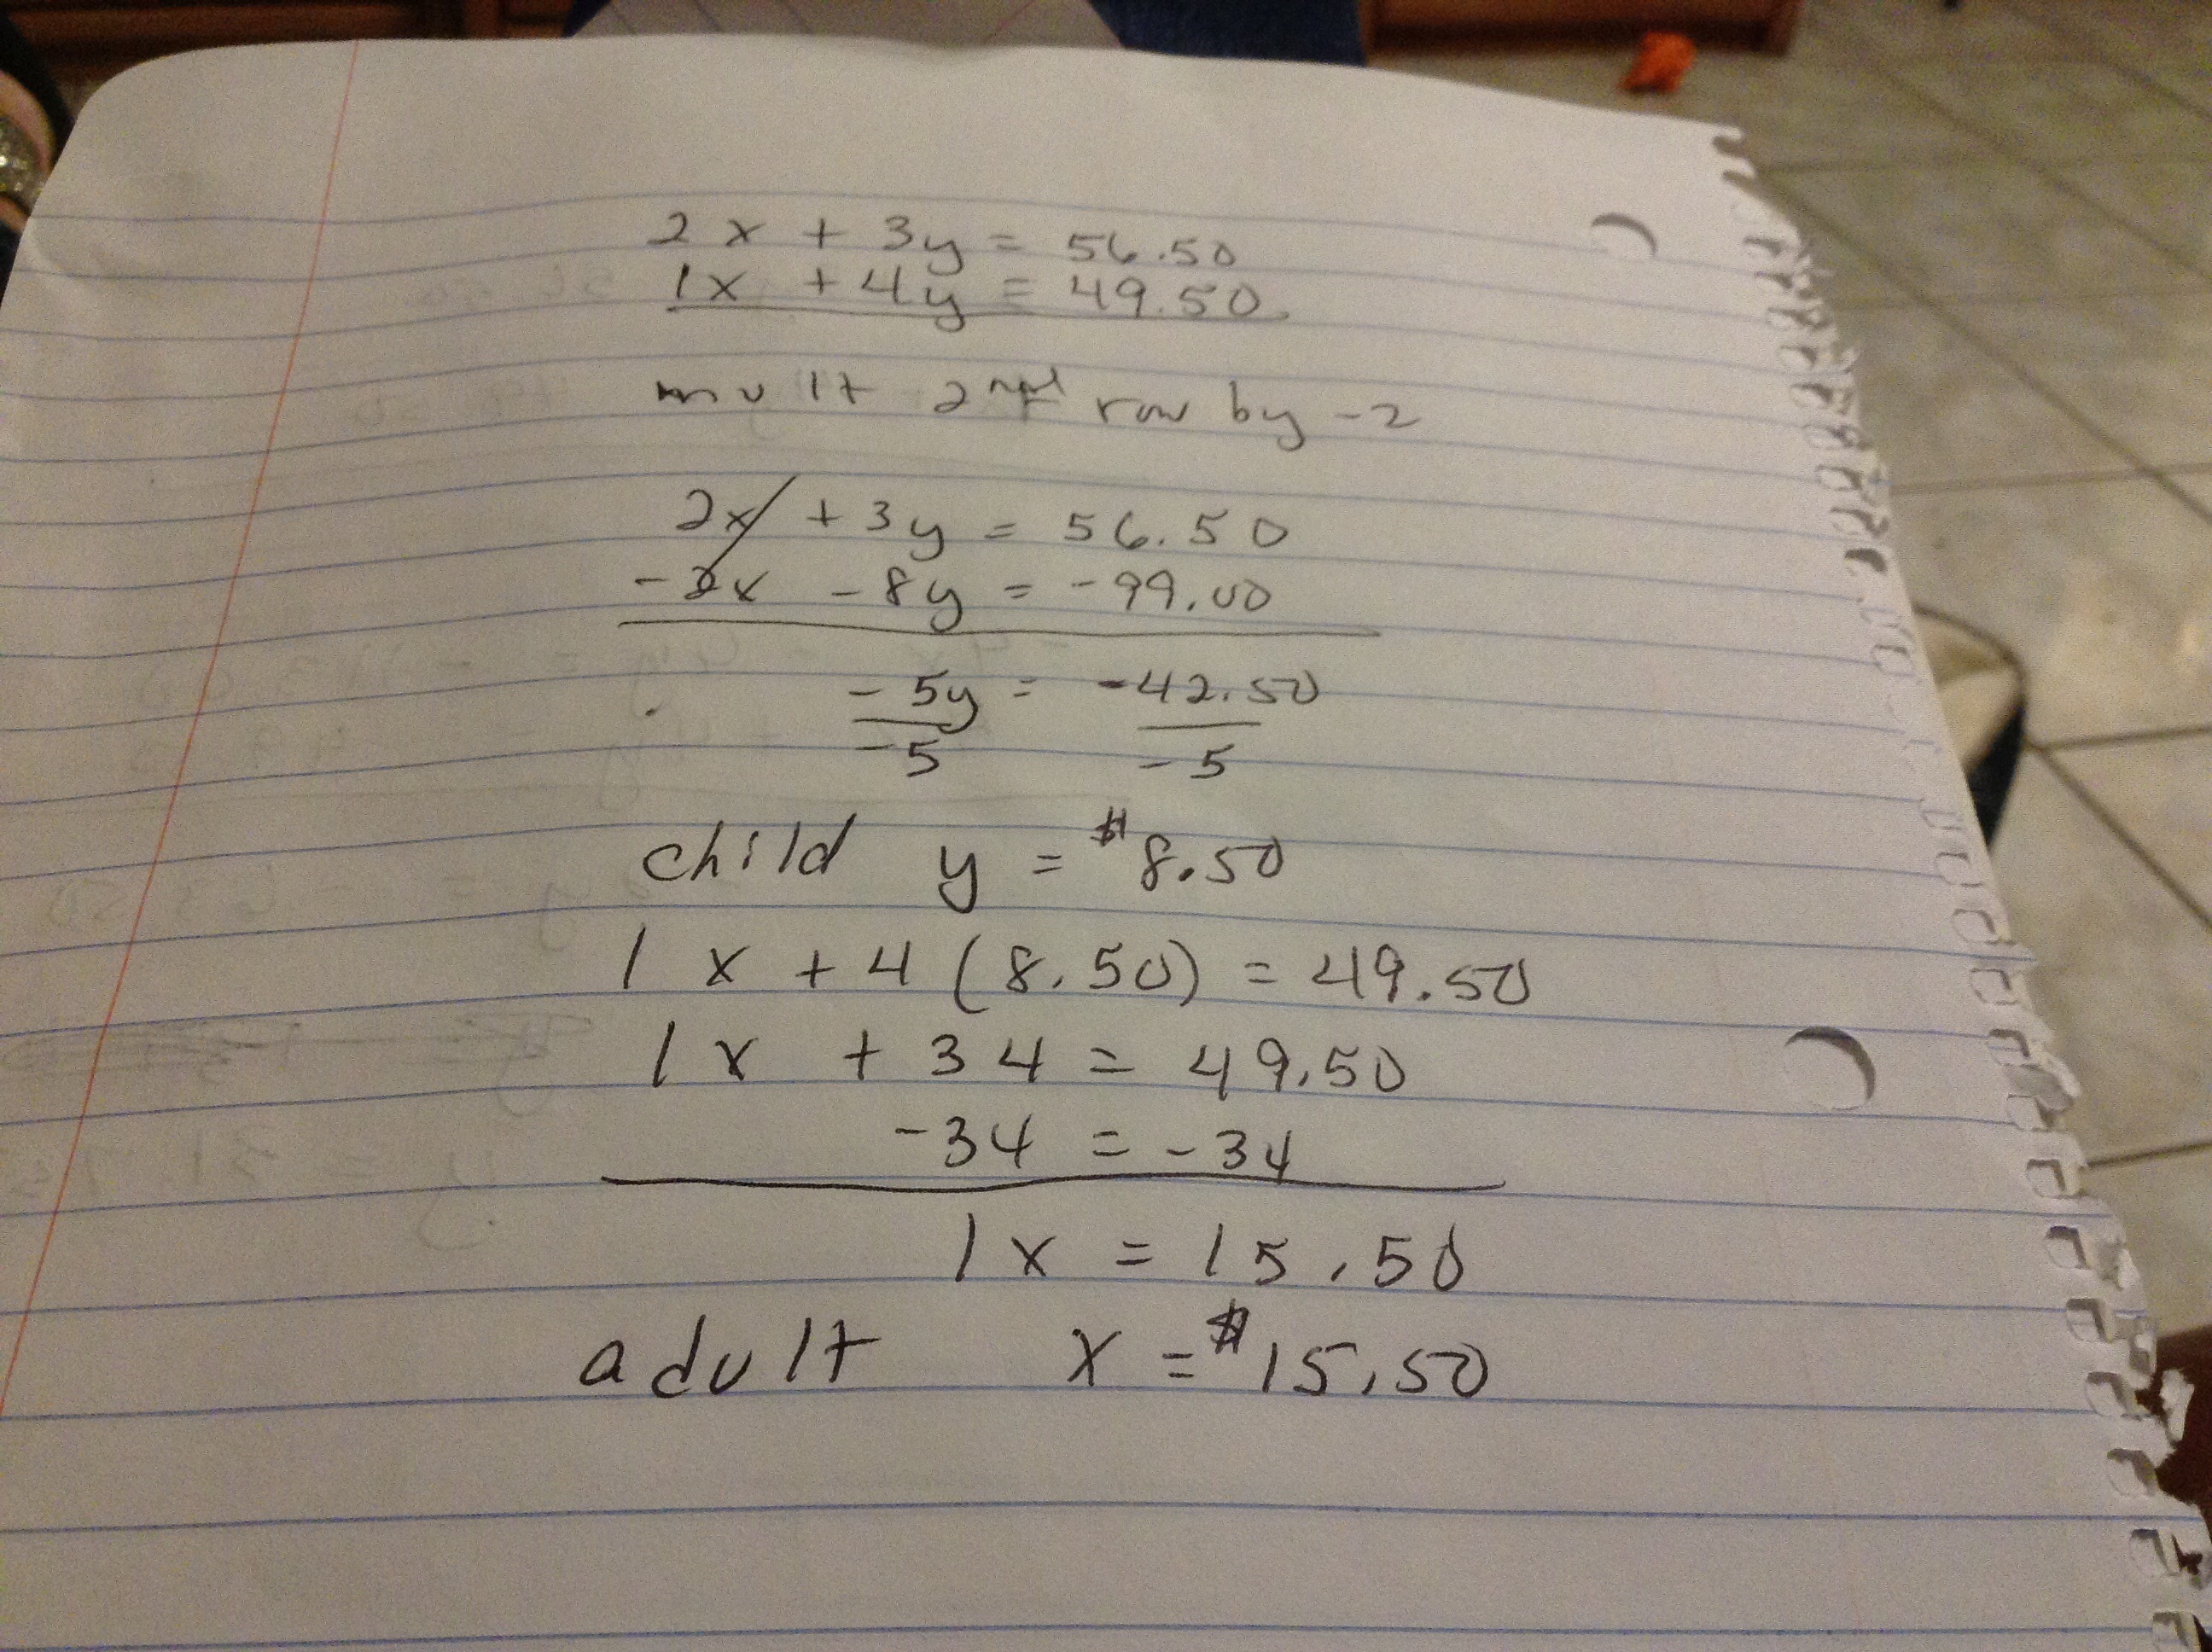 2x + 3y = 56.50
1x + 4y = 49.50
mult 2nd row by -2
2x + 3y = 56.50
-2x - 8y = -99.00
-5y = -42.50
-5 -5
child y = $8.50
1x + 4(8.50) = 49.50
1x + 34 = 49.50
-34 = -34
1x = 15.50
adult x = $15.50